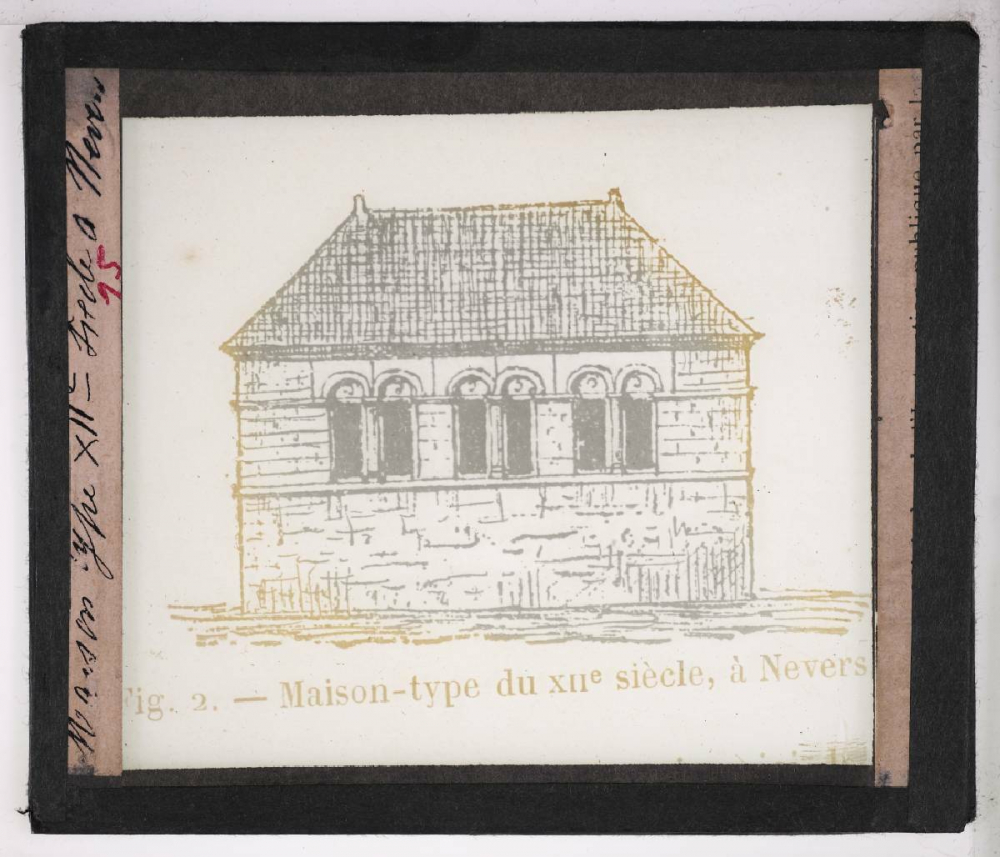 Maison type XIIe Siècle à Nevers
95
Fig. 2. — Maison-type du XIIe siècle, à Nevers
publique par la